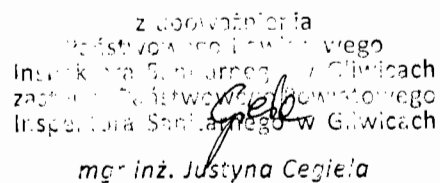 z upoważnienia
Państwowego Powiatowego
Inspektora Sanitarnego w Gliwicach
zastępca Państwowego Powiatowego
Inspektora Sanitarnego w Gliwicach
mgr inż. Justyna Cegieła